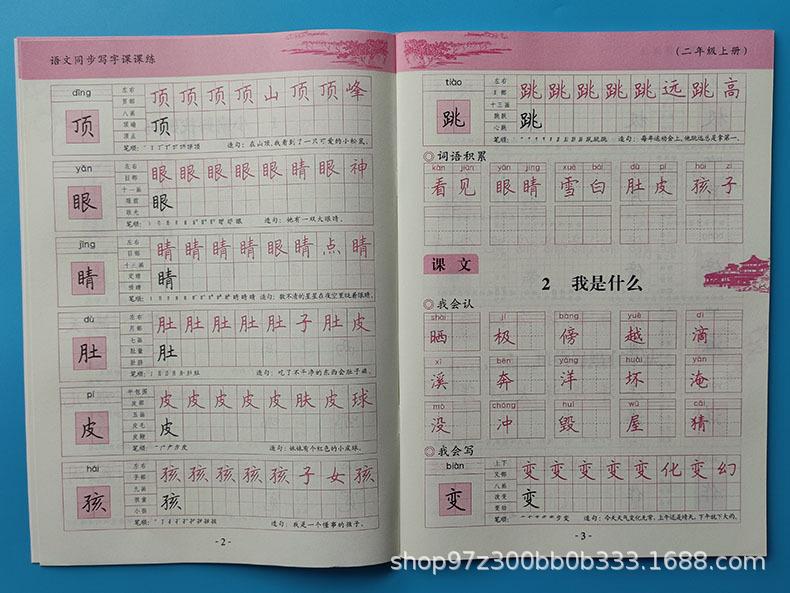 语文同步写字课课练
dǐng
左右
页部
八画
顶端
顶点
顶
顶顶顶顶山顶顶峰
顶
造句：在山顶，我看到了一只可爱的小松鼠。
yǎn
左右
目部
十一画
眼前
眼光
眼
眼眼眼眼眼睛眼神
眼
造句：她有一双大眼睛。
jīng
左右
目部
十三画
睛
睛睛睛睛眼睛点睛
睛
造句：数不清的星星在夜空里眨着眼睛。
dù
左右
月部
七画
肚量
肚脐
肚
肚肚肚肚肚子肚皮
肚
造句：吃了不干净的东西会肚子痛。
pí
半包围
皮部
五画
皮毛
皮鞭
皮
皮皮皮皮皮肤皮球
皮
造句：妹妹有个红色的小皮球。
hái
左右
子部
九画
孩童
小孩
孩
孩孩孩孩孩子女孩
孩
造句：我是一个懂事的孩子。
- 2 -
(二年级上册)
tiào
左右
十三画
跳跃
心跳
跳
跳跳跳跳跳远跳高
跳
造句：每年运动会上，他跳远总是拿第一。
◎词语积累
kàn jiàn yǎn jīng xuě bái dù pí hái zi
看见 眼睛 雪白 肚皮 孩子
课文
2 我是什么
◎我会认
shài jí bàng yuè dī
晒 极 傍 越 滴
xī bēn yáng huài yān
溪 奔 洋 坏 淹
mò chōng huǐ wū cāi
没 冲 毁 屋 猜
◎我会写
biàn
上下
又部
八画
改变
变
变变变变变化变幻
变
造句：今天天气变化无常，上午还是晴天，下午就下大雨。
- 3 -
shop97z300bb0b333.1688.com